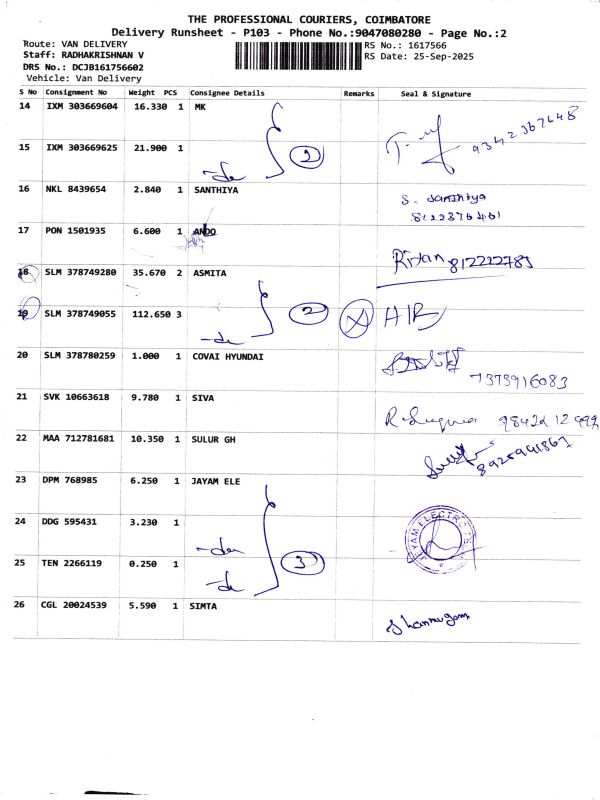 THE PROFESSIONAL COURIERS, COIMBATORE
Delivery Runsheet - P103 - Phone No.:9047080280 - Page No.:2
Route: VAN DELIVERY
RS No.: 1617566
Staff: RADHAKRISHNAN V
RS Date: 25-Sep-2025
DRS No.: DCJB161756602
Vehicle: Van Delivery
S No Consignment No Weight PCS Consignee Details Remarks Seal & Signature
14 IXM 303669604 16.330 1 MK 9342367648
15 IXM 303669625 21.900 1 2
16 NKL 8439654 2.840 1 SANTHIYA S. Santhiya
17 PON 1501935 6.600 1 ANDO
18 SLM 378749280 35.670 2 ASMITA
19 SLM 378749055 112.650 3 2
20 SLM 378780259 1.000 1 COVAI HYUNDAI
7373916083
21 SVK 10663618 9.780 1 SIVA
22 MAA 712781681 10.350 1 SULUR GH
23 DPM 768985 6.250 1 JAYAM ELE
24 DDG 595431 3.230 1
25 TEN 2266119 0.250 1 3
26 CGL 20024539 5.590 1 SIMTA Shanmugam